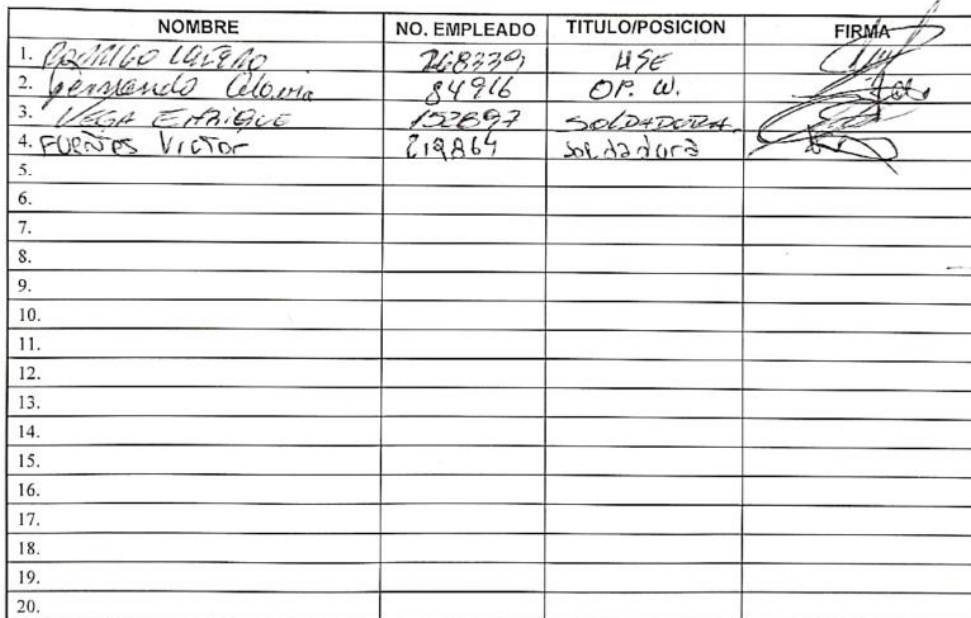 NOMBRE NO. EMPLEADO TITULO/POSICION FIRMA
1. RODRIGO 268339 HSE
2. Fernando 84916 OP. W.
3. VEGA ENRIQUE 152897 SOLDADURA.
4. FUENTES VICTOR 219864 Soldadura
5.
6.
7.
8.
9.
10.
11.
12.
13.
14.
15.
16.
17.
18.
19.
20.